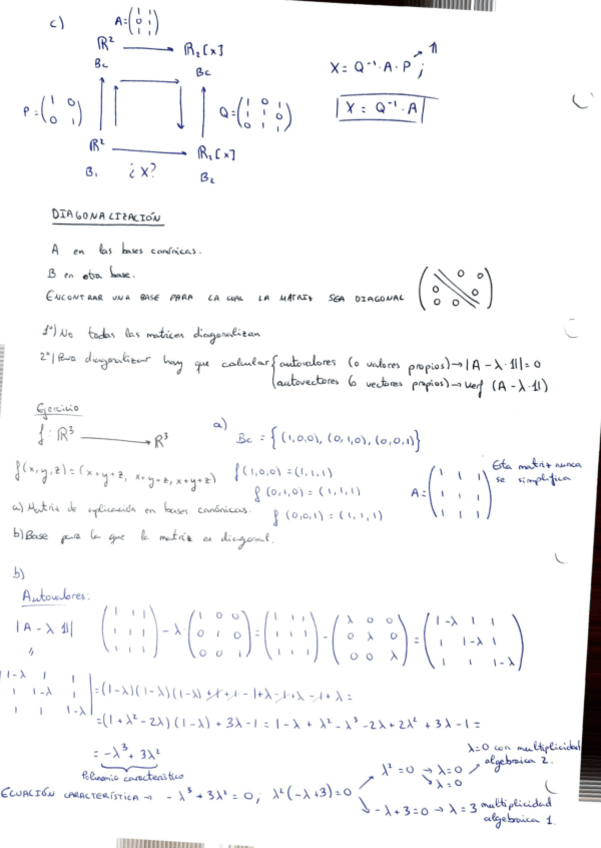 c)
A = ( 1 1 / 0 1 / 1 1 )
ℝ² → ℝ₂[x]
Bc Bc
X = Q⁻¹·A·P ; → 𝟙
P = ( 1 0 / 0 1 )
Q = ( 1 0 1 / 1 1 0 / 0 1 1 )
X = Q⁻¹·A
ℝ² → ℝ₂[x]
B₁ ¿X? B₂
DIAGONALIZACIÓN
A en las bases canónicas.
B en otra base.
ENCONTRAR UNA BASE PARA LA CUAL LA MATRIZ SEA DIAGONAL ( 0 0 0 / 0 0 0 )
1º) No todas las matrices diagonalizan
2º) Para diagonalizar hay que calcular { autovalores (o valores propios) → |A - λ·𝟙| = 0
autovectores (o vectores propios) → Kerf (A - λ·𝟙)
Ejercicio
f: ℝ³ → ℝ³
a) Bc = { (1,0,0), (0,1,0), (0,0,1) }
f(x,y,z) = (x+y+z, x+y+z, x+y+z)
f(1,0,0) = (1,1,1)
f(0,1,0) = (1,1,1)
f(0,0,1) = (1,1,1)
A = ( 1 1 1 / 1 1 1 / 1 1 1 )
Esta matriz nunca
se simplifica
a) Matriz de aplicación en bases canónicas.
b) Base para la que la matriz es diagonal.
b)
Autovalores:
|A - λ𝟙| ( 1 1 1 / 1 1 1 / 1 1 1 ) - λ ( 1 0 0 / 0 1 0 / 0 0 1 ) = ( 1 1 1 / 1 1 1 / 1 1 1 ) - ( λ 0 0 / 0 λ 0 / 0 0 λ ) = ( 1-λ 1 1 / 1 1-λ 1 / 1 1 1-λ )
| 1-λ 1 1 / 1 1-λ 1 / 1 1 1-λ | = (1-λ)(1-λ)(1-λ) + 1 + 1 - 1 + λ - 1 + λ - 1 + λ =
= (1 + λ² - 2λ)(1-λ) + 3λ - 1 = 1 - λ + λ² - λ³ - 2λ + 2λ² + 3λ - 1 =
= -λ³ + 3λ²
Polinomio característico
ECUACIÓN CARACTERÍSTICA → -λ³ + 3λ² = 0 ; λ²(-λ+3) = 0
λ² = 0 → λ = 0
→ λ = 0
λ = 0 con multiplicidad
algebraica 2.
-λ + 3 = 0 → λ = 3 multiplicidad
algebraica 1.